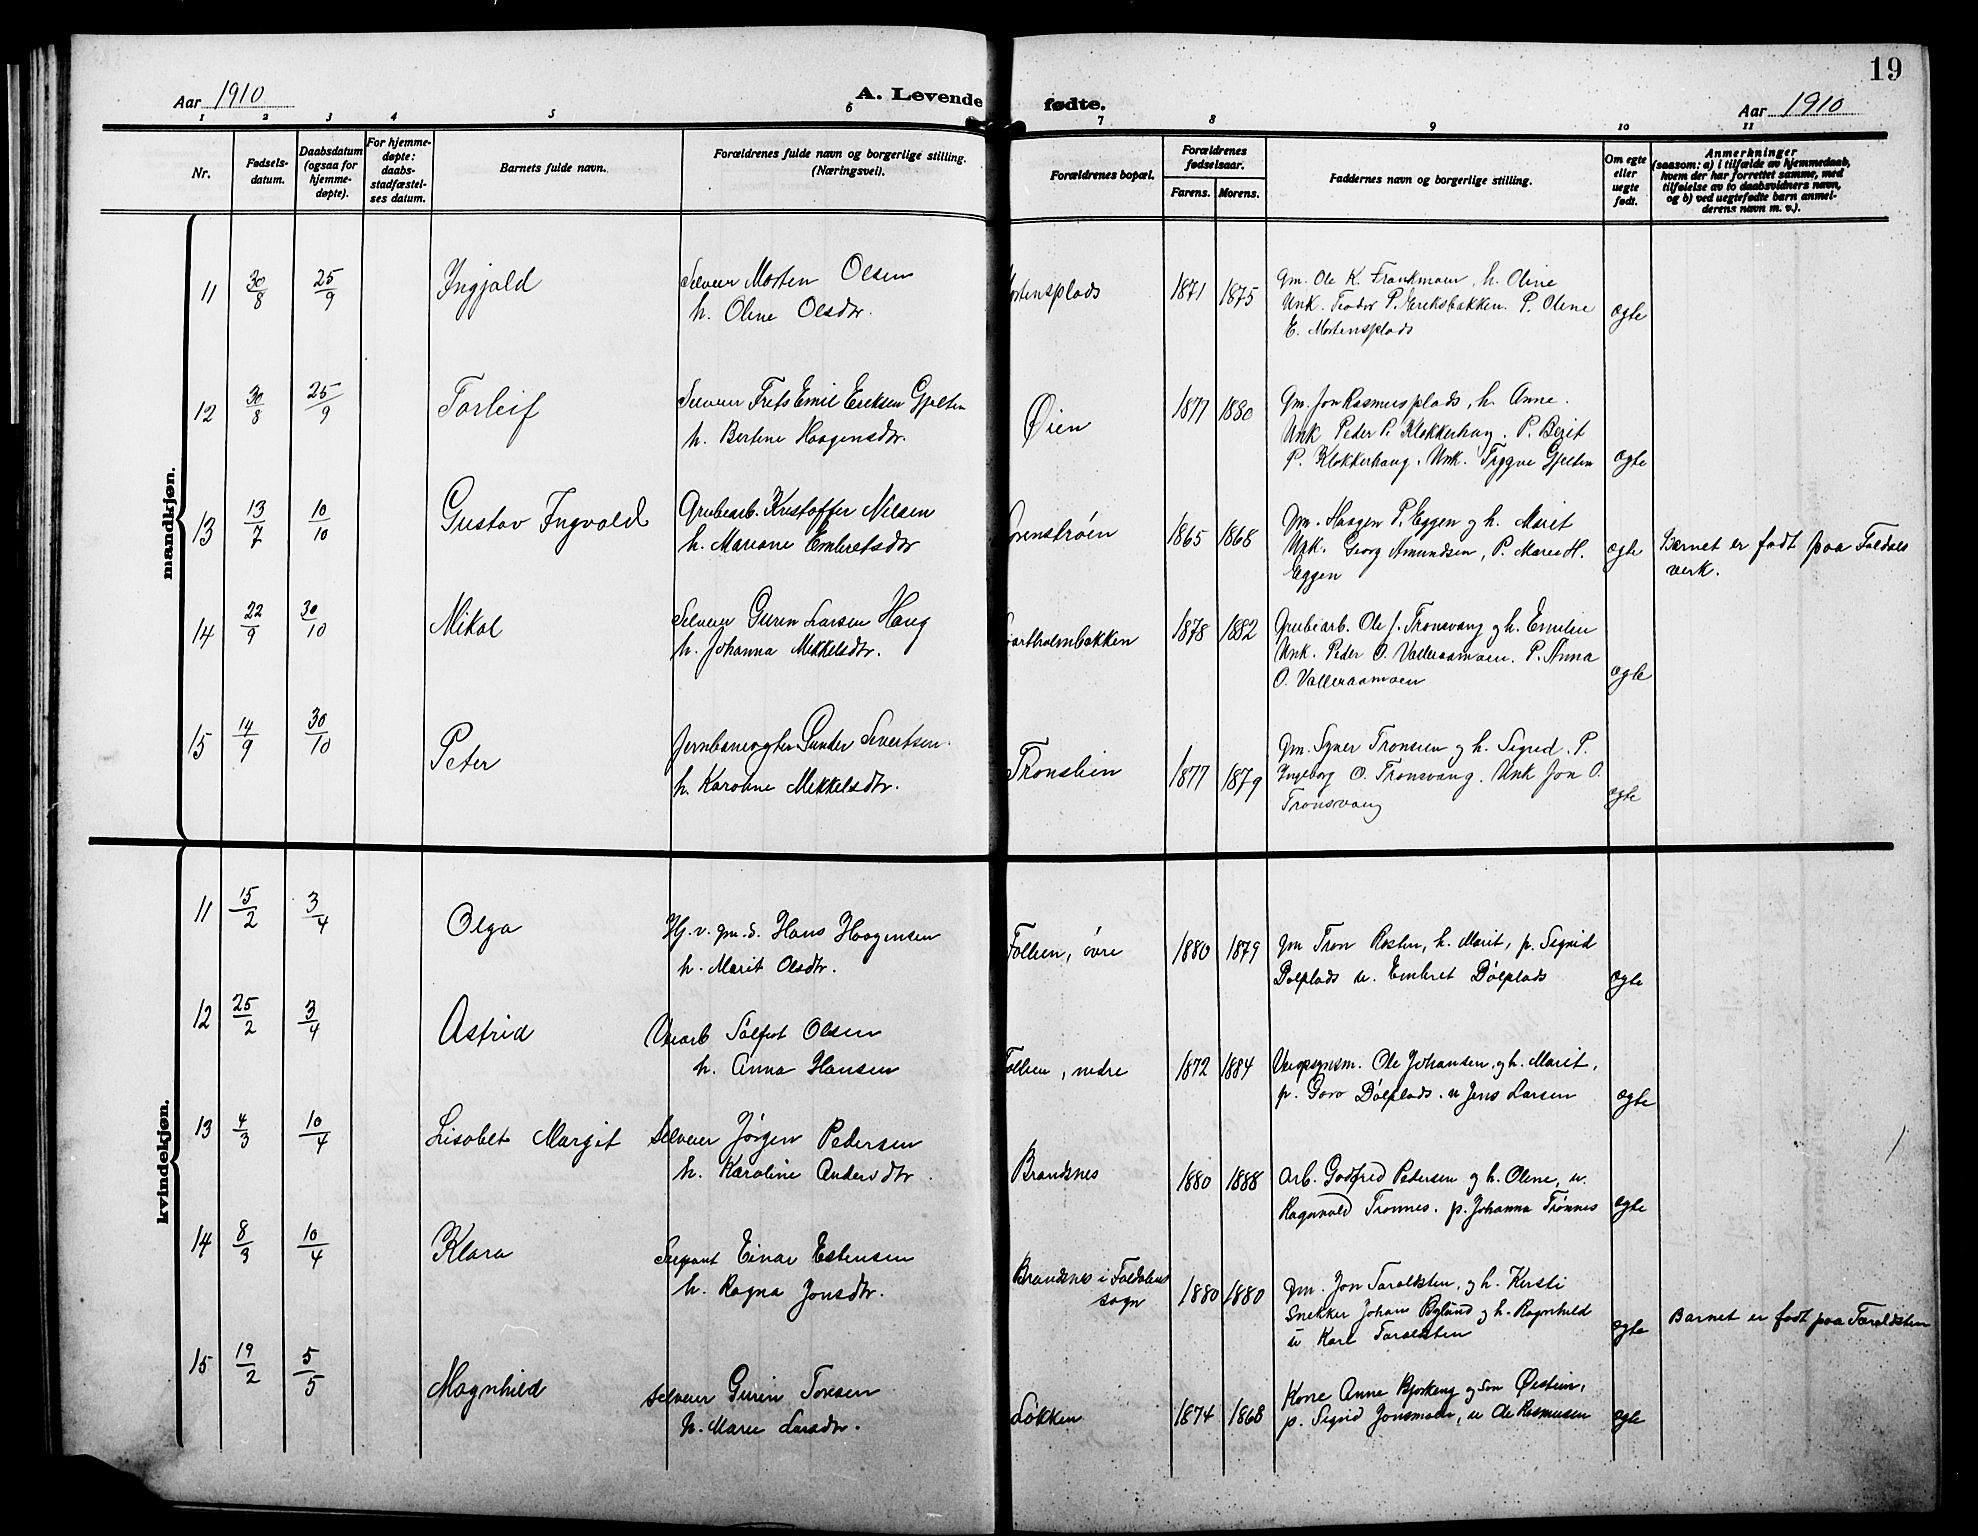 19
Aar 1910
A. Levende fødte.
Aar 1910
1 2 3 4 5 6 7 8 9 10 11
Nr.
Fødsels-
datum.
Daabsdatum
(ogsaa for
hjemme-
døpte).
For hjemme-
døpte:
daabs-
stadfæstel-
ses datum.
Barnets fulde navn.
Forældrenes fulde navn og borgerlige stilling.
(Næringsvei).
Forældrenes bopæl.
Forældrenes
fødselsaar.
Farens. Morens.
Faddernes navn og borgerlige stilling.
Om egte
eller
uegte
født.
Anmerkninger
(saasom: a) i tilfælde av hjemmedaab,
hvem der har forrettet samme, med
tilføielse av to daabsvidners navn,
og b) ved uegtefødte barn anmel-
derens navn m. v.).
mandkjøn.
11 30/8 25/9 Ingjald Selveier Morten Olsen
h. Oline Olsdtr.
1871 1875 Gm. Ole K. h. Oline
Unk. Teodor P. Eriksbakken. P. Oline
E. Mortensplads
ægte
12 30/8 25/9 Torleif Selveier Frits Emil Eriksen Gjelten
h. Bertine Haagensdtr.
Øien 1877 1880 Gm. Jon Rasmusplads, h. Anne.
Unk Peder P. Klokkerhaug. P. Berit
P. Klokkerhaug. Unk. Trygve Gjelten
ægte
13 13/7 10/10 Gustav Ingvald Grubearb. Kristoffer Nilsen
h. Mariane Embretsdtr
1865 1868 Gm. Haagen P. Eggen og h. Marit
Unk. Georg Amundsen, P. Marie H.
Eggen
ægte Barnet er født paa Foldals
verk.
14 22/9 30/10 Mikal Selveier Gurin Larsen Haug
h. Johanna Mikkelsdtr.
1878 1882 Grubearb. Ole J. Tronsvang og h. Emilie
Unk. Peder O. Valleraamoen. P. Anna
O. Valleraamoen
ægte
15 14/9 30/10 Peter Jernbanevogter Sivertsen.
h. Karoline Mikkelsdtr.
Tronslien 1877 1879 Gm. Tronsien og h. Sigrid. P.
Ingeborg O. Tronsvang. Unk Jon O.
Tronsvang
ægte
kvindekjøn.
11 15/2 3/4 Olga Hj. v. gm. s. Hans Haagensen
h. Marit Olsdtr.
øvre 1880 1879 Gm Tron Rosten, h. Marit, p. Sigrid
Dølplads u. Embret Dølplads
ægte
12 25/2 3/4 Astrid Olsen
h. Anna Hansen
nedre 1872 1884 Ole Johansen og h. Marit,
p. Goro Dølplads. u Jens Larsen
ægte
13 4/3 10/4 Lisabet Margit Selveier Jørgen Pedersen
h. Karoline Andersdtr.
Brandsnes 1880 1888 Arb. Godfred Pedersen og h. Oline, u.
Ragnvald Tronnes. p. Johanna Trønnes
ægte
14 8/3 10/4 Klara Sergeant Einar Estensen
h. Ragna Jonsdtr.
Brandsnes i Foldalens
sogn
1880 1880 Gm. Jon Taraldsten, og h. Kersti
Snekker Johans Nylund og h. Ragnhild
u Karl Taraldsten
ægte Barnet er født paa Taraldsten
15 19/2 5/5 Magnhild Selveier Gurin Toresen
h. Marie Larsdtr.
Løkken 1874 1868 Kone Anne Bjørkeng og søn Øistein,
p. Sigrid Jonsmoen, u Ole Rasmusen
ægte